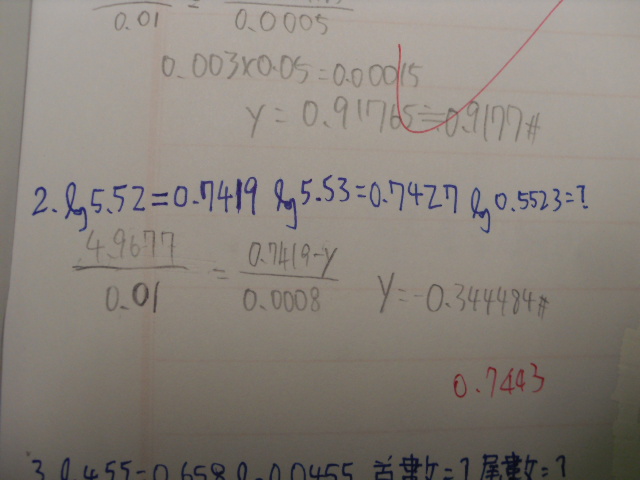 0.01 = 0.0005
0.003×0.05=0.00015
y=0.91765≒0.9177#
2. log 5.52=0.7419 log 5.53=0.7427 log 0.5523=?
4.9677/0.01 = 0.7419-y/0.0008 y=-0.344484#
0.7443
3. log 455=0.658 log 0.0455 首數=? 尾數=?